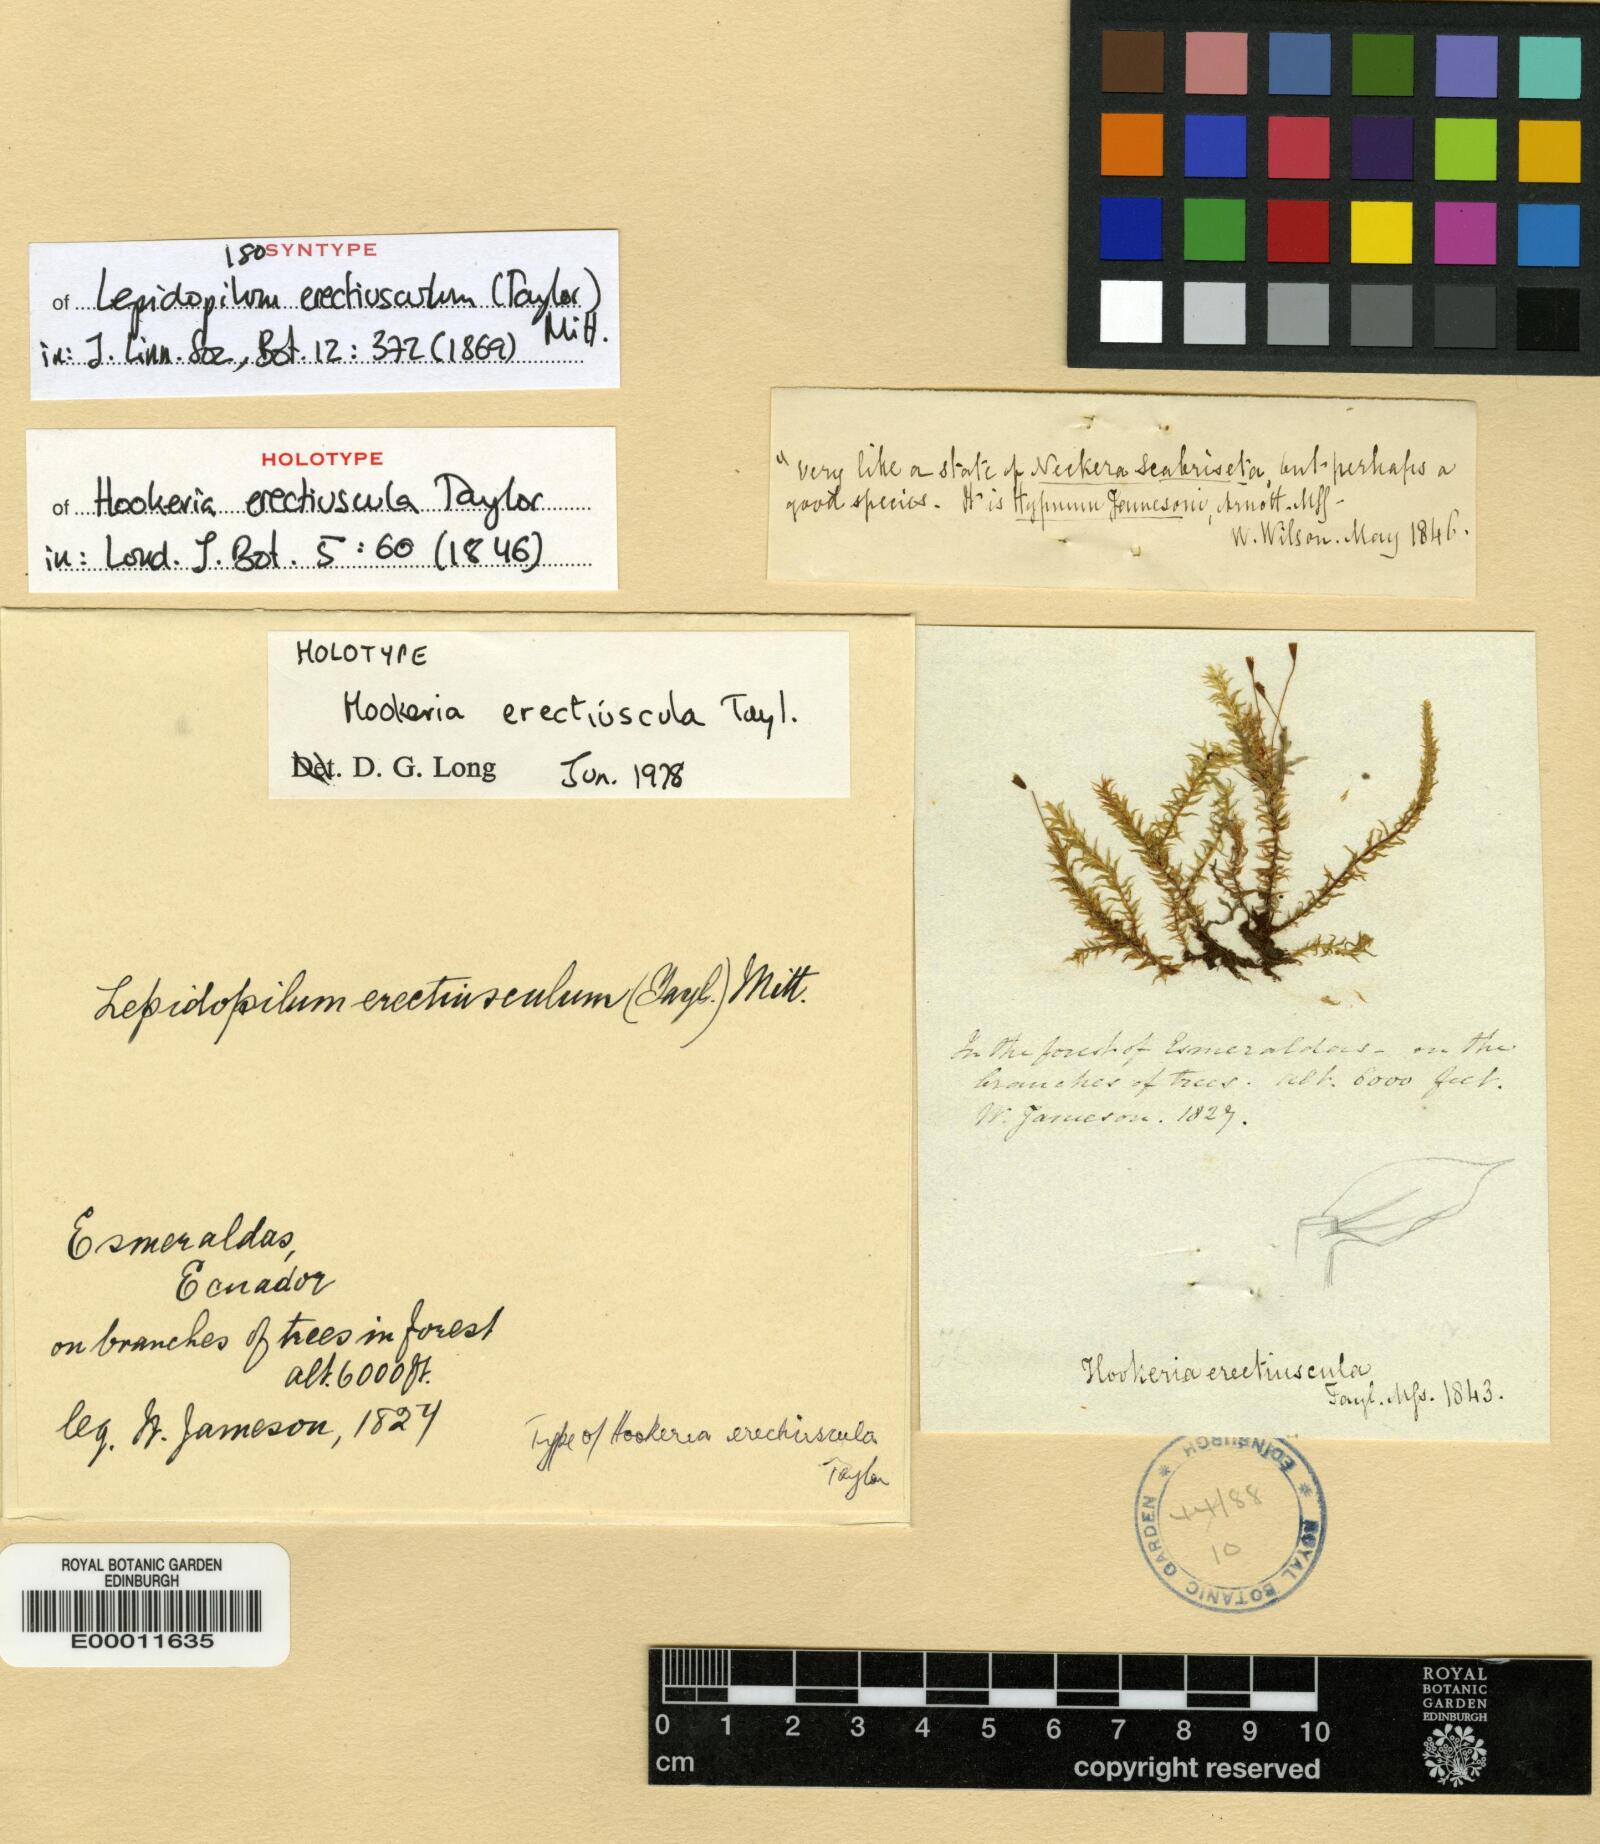 ISOSYNTYPE
of Lepidopilum erectiusculum (Taylor)
Mitt.
in: J. Linn. Soc., Bot. 12: 372 (1869)
HOLOTYPE
of Hookeria erectiuscula Taylor
in: Lond. J. Bot. 5: 60 (1846)
"Very like a state of Neckera scabriseta, but perhaps a
good species. It is Hypnum Jamesoni, Arnott. Mss-
W. Wilson. May 1846.
HOLOTYPE
Hookeria erectiuscula Tayl.
Det. D. G. Long Jun. 1978
Lepidopilum erectiusculum (Tayl.) Mitt.
Esmeraldas,
Ecuador
on branches of trees in forest
alt. 6000ft.
leg. W. Jameson, 1827
Type of Hookeria erectiuscula
Taylor
In the forest of Esmeraldas - on the
branches of trees. Alt. 6000 feet.
W. Jameson. 1827.
Hookeria erectiuscula
Tayl. Mss. 1843.
ROYAL BOTANIC GARDEN EDINBURGH
/88
10
ROYAL BOTANIC GARDEN
EDINBURGH
E00011635
0 1 2 3 4 5 6 7 8 9 10
cm
copyright reserved
ROYAL
BOTANIC
GARDEN
EDINBURGH